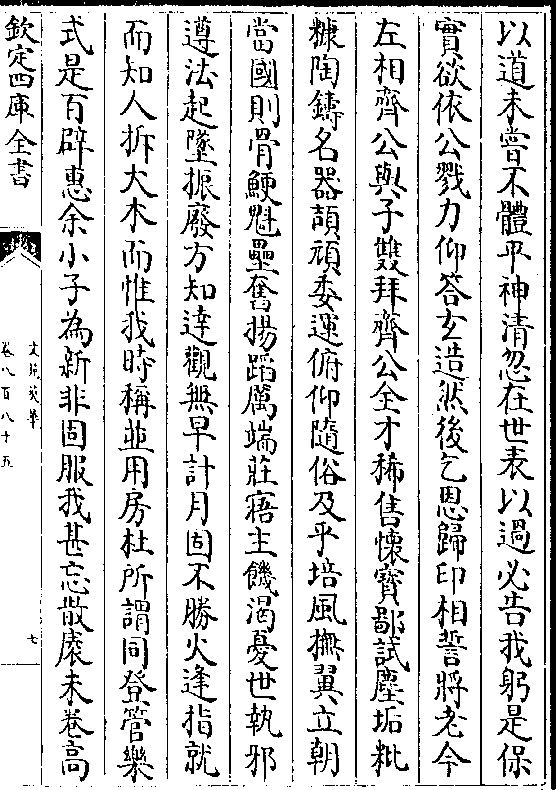 以道未嘗不體平神清忽在世表以過必告我躬是保
實欲依公戮力仰答玄造然後乞恩歸印相誓將老今
左相齊公與子雙拜齊公全才稀售懷寶鄙試塵垢粃
糠陶鑄名器頡頏委運俯仰隨俗及乎培風撫翼立朝
當國則骨鯁魁壘奮揚蹈厲端莊寤主饑渴憂世執邪
遵法起墜振廢方知達觀無早計月固不勝火逢指就
而知人拆大木而惟我時稱並用房杜所謂同登管樂
式是百辟惠余小子為新非固服我甚忘散廩未卷高
欽定四庫全書
文苑英華
卷八百八十五
七